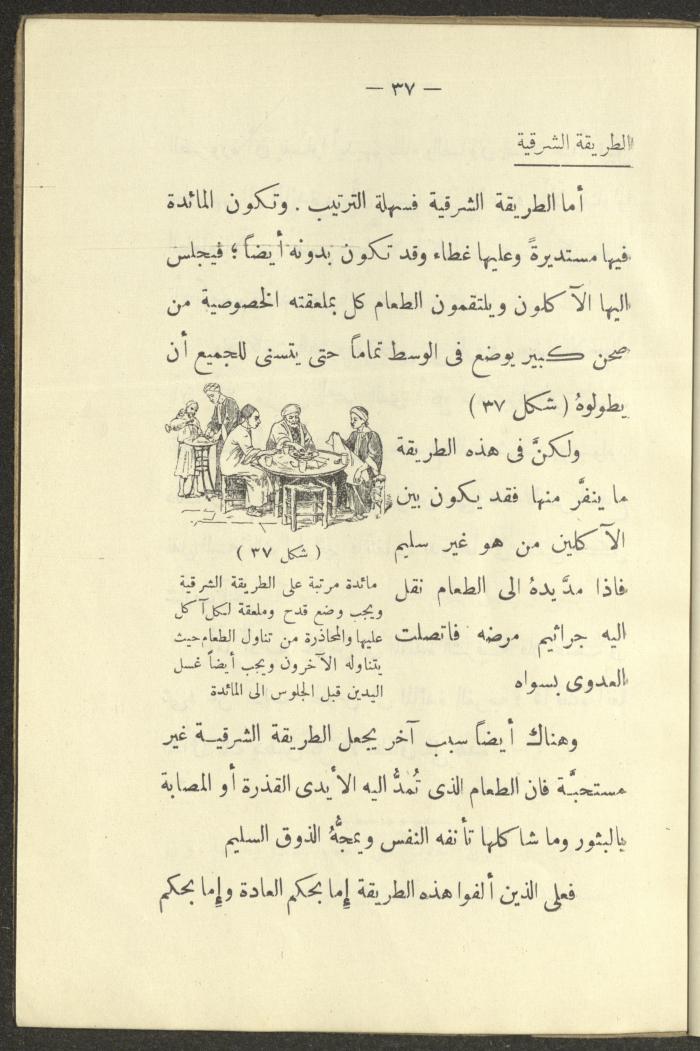 — ٣٧ —
الطريقة الشرقية
أما الطريقة الشرقية فسهلة الترتيب . وتكون المائدة
فيها مستديرةً وعليها غطاء وقد تكون بدونه أيضاً ؛ فيجلس
اليها الآكلون ويلتقمون الطعام كل بملعقته الخصوصية من
صحن كبير يوضع فى الوسط تماماً حتى يتسنى للجميع أن
يطولوهُ ( شكل ٣٧ )
ولكنَّ فى هذه الطريقة
ما ينفَّر منها فقد يكون بين
الآكلين من هو غير سليم
فاذا مدَّ يدهُ الى الطعام نقل
اليه جراثيم مرضه فاتصلت
العدوى بسواه
( شكل ٣٧ )
مائدة مرتبة على الطريقة الشرقية
ويجب وضع قدح وملعقة لكل آكل
عليها والمحاذرة من تناول الطعام حيث
يتناوله الآخرون ويجب أيضاً غسل
اليدين قبل الجلوس الى المائدة
وهناك أيضاً سبب آخر يجعل الطريقة الشرقية غير
مستحبَّة فان الطعام الذى تُمدُّ اليه الأيدى القذرة أو المصابة
بالبثور وما شاكلها تأنفه النفس ويمجُّهُ الذوق السليم
فعلى الذين ألفوا هذه الطريقة إما بحكم العادة وإما بحكم